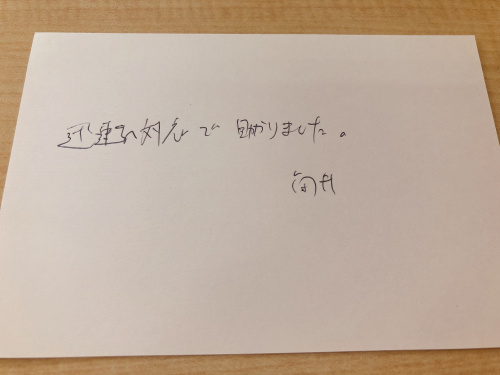 迅速な対応で助かりました。
向井